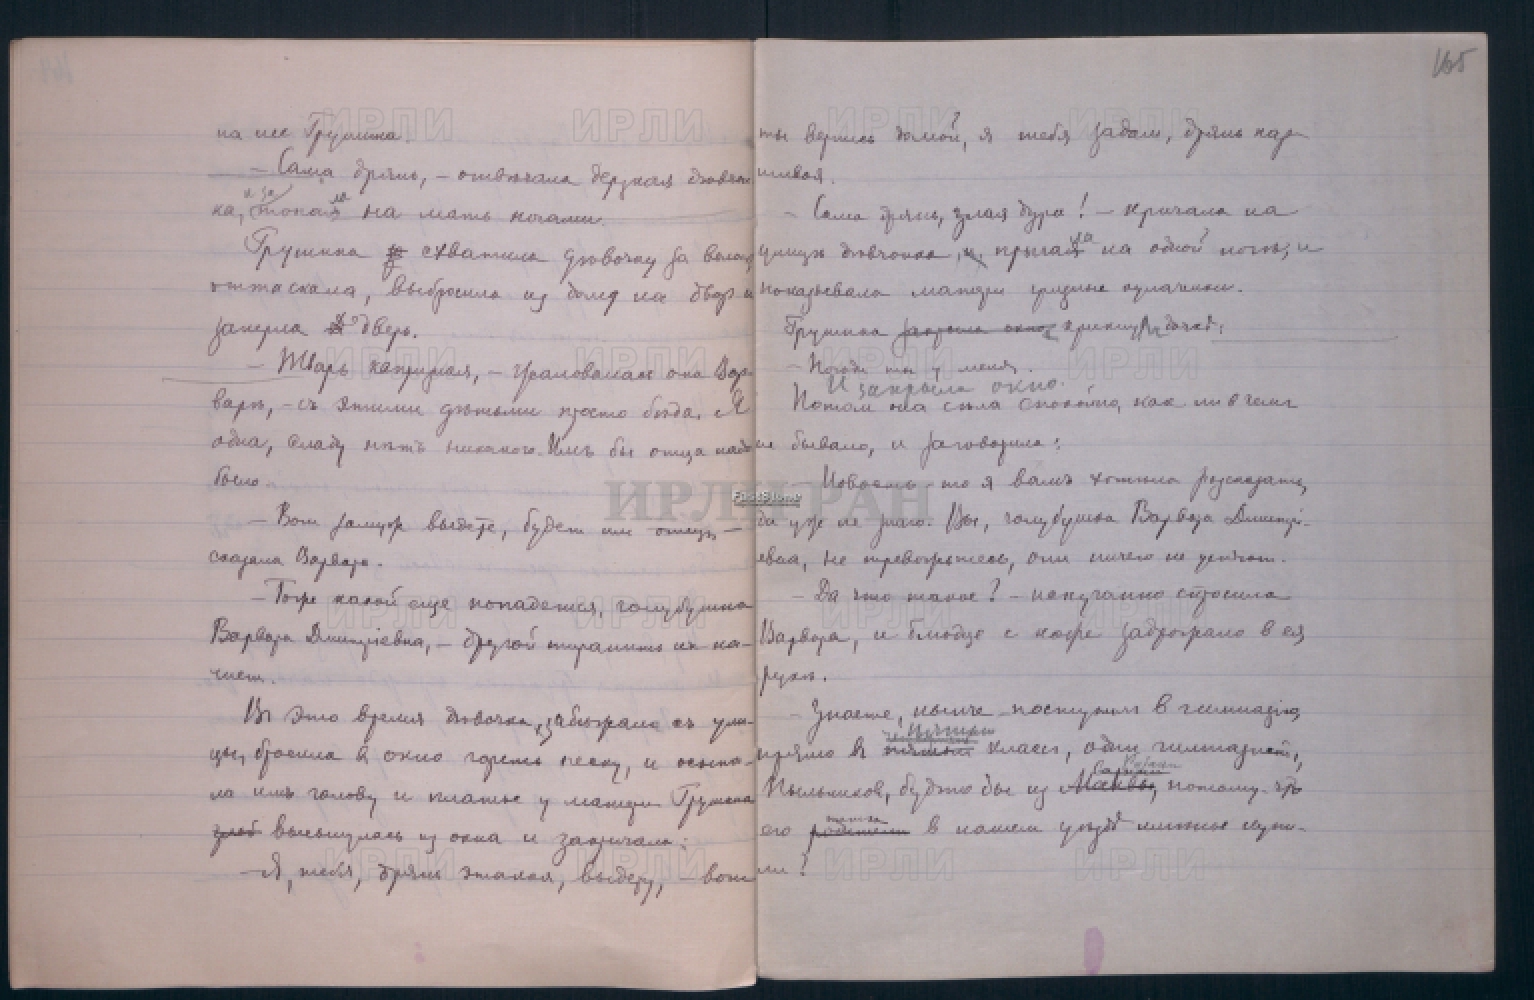 на нее Грушина.
— Сама дрянь, — отвѣчала дерзкая дѣвчон
ка, и затопала на мать ногами.
Грушина схватила дѣвочку за волосы
оттаскала, выбросила из дому на двор и
заперла дверь.
— Тварь капризная, — жаловалась она Вар-
варѣ, — съ этими дѣтьми просто бѣда. Я
одна, сладу нѣтъ никакого. Имъ бы отца надо
было.
— Вот замуж выдете, будет им отец, —
сказала Варвара.
— Тоже какой еще попадется, голубушка
Варвара Дмитріевна, — другой тиранить их на-
чнет.
Въ это время дѣвочка забѣжала съ ули-
цы, бросила в окно горсть песку, и осыпа-
ла имъ голову и платье у матери. Грушина
высунулась из окна и закричала:
— Я, тебя, дрянь этакая, выдеру, — вот
165
ты вернись домой, я тебя задам, дрянь пар-
шивая.
— Сама дрянь, злая дура! — кричала на
улицѣ дѣвчонка, прыгала на одной ногѣ, и
показывала матери грязные кулаченки.
Грушина закрыла окно крикнула дочкѣ:
— Погоди ты у меня.
И закрыла окно.
Потом она сѣла спокойно, как ни в чем
не бывало, и заговорила:
— Новость-то я вамъ хотѣла рассказать,
да уж не знаю. Вы, голубушка Варвара Дмитрі-
евна, не тревожьтесь, они ничего не успѣют.
— Да что такое? — испуганно спросила
Варвара, и блюдце с кофе задрожало в ея
руках.
— Знаете, нынче поступил в гимназію,
прямо в пятый класс, один гимназист,
Пыльников, будто бы из Москвы, потому что
его тетка родители в нашем уѣздѣ имѣнье купи-
ли?
ИРЛИ РАН
FastStone
ИРЛИ